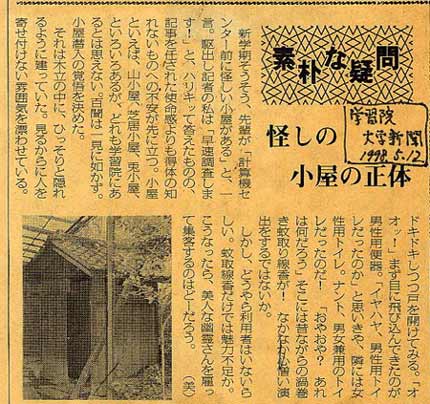 素朴な疑問
学習院
大学新聞
1998.5.12
怪しの
小屋の正体
新学期そうそう、先輩が「計算機セ
ンター前に怪しい小屋がある」と、一
言。駆出し記者の私は「早速調査しま
す！」と、ハリキッて答えたものの、
記事を任された使命感よりも得体の知
れないものへの不安が先に立つ。小屋
といえば、山小屋、芝居小屋、兎小屋、
といろいろあるが、どれも学習院にあ
るとは思えない。百聞は一見に如かず。
小屋潜入の覚悟を決めた。
それは木立の中に、ひっそりと隠れ
るように建っていた。見るからに人を
寄せ付けない雰囲気を漂わせている。
ドキドキしつつ戸を開けてみる。「オ
オッ！」まず目に飛び込んできたのが
男性用便器。「イヤハヤ、男性用トイ
レだったのか」と思いきや、隣には女
性用トイレ。ナント、男女兼用のトイ
レだったのだ！「おやおや？　あれ
は何だろう」そこには昔ながらの渦巻
き蚊取り線香が！　なかなか憎い演
出をするではないか。
しかし、どうやら利用者はいないら
しい。蚊取線香だけでは魅力不足か。
こうなったら、美人な幽霊さんを雇っ
て集客するのはどーだろう。
（美）